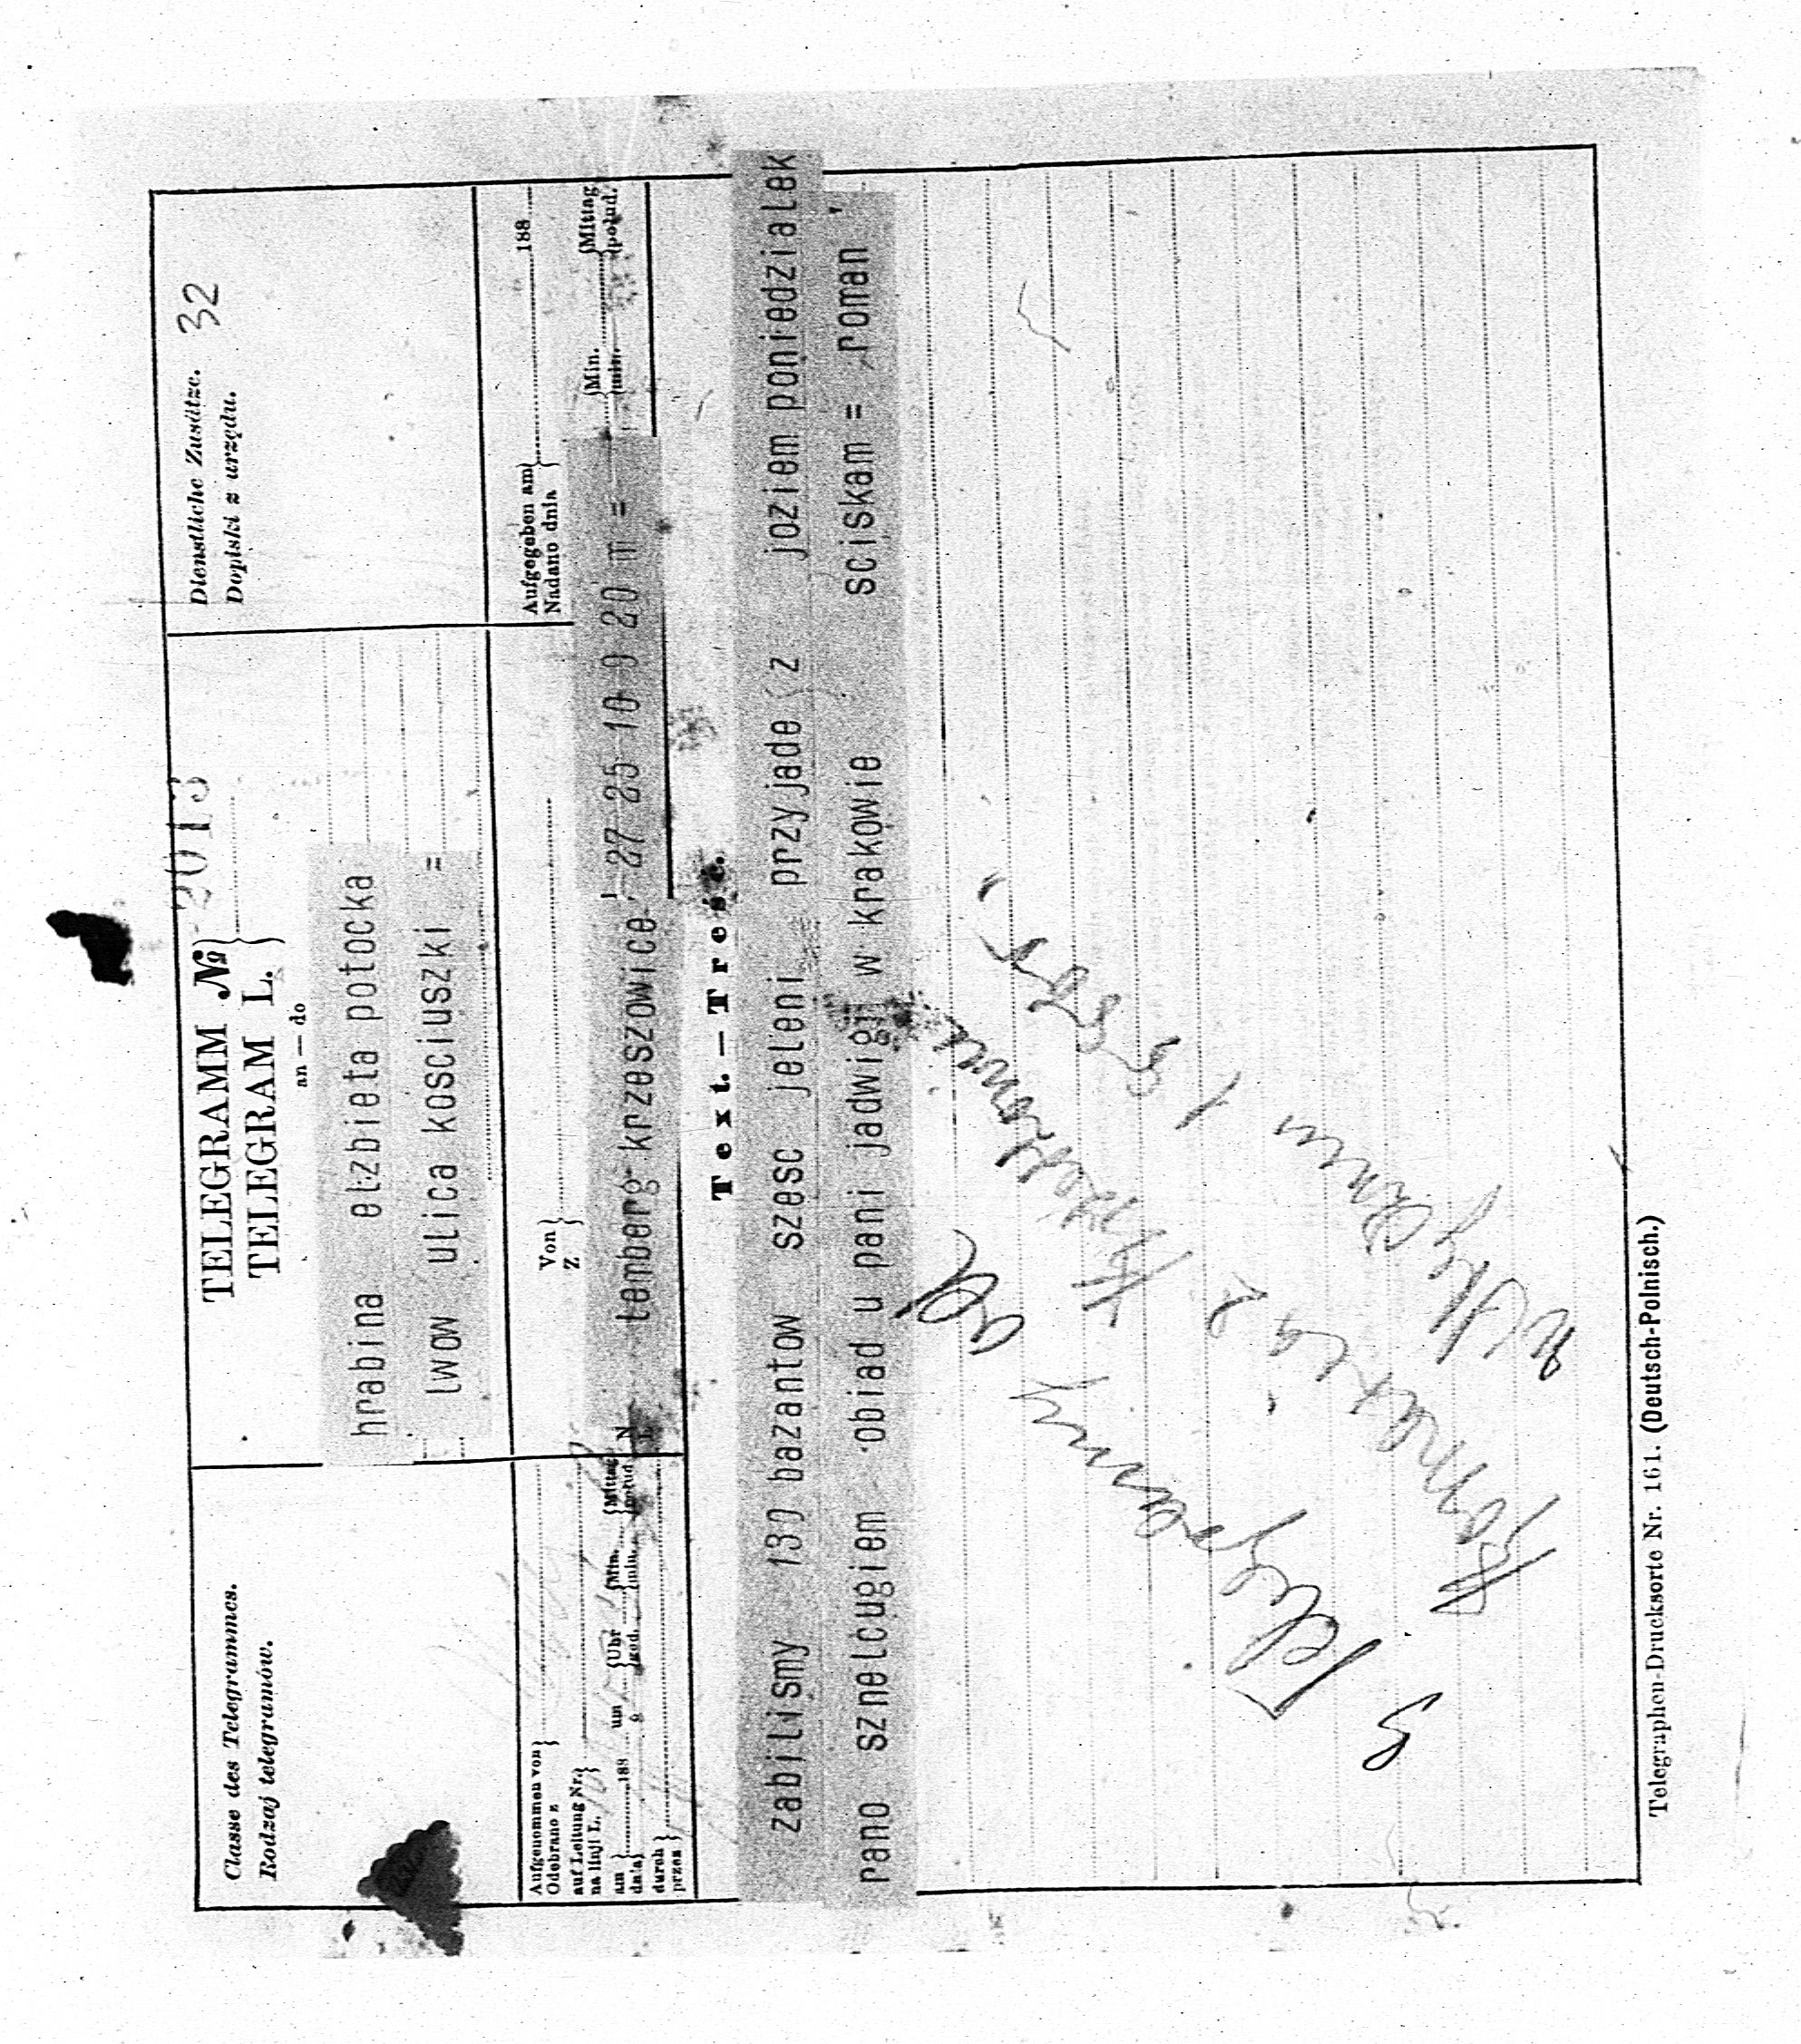 Classe des Telegrammes.
Rodzaj telegramów.
TELEGRAMM №
TELEGRAM L.
2013
an — do
hrabina elzbieta potocka
lwow ulica kosciuszki =
Dienstliche Zusätze. 32
Dopiski z urzędu.
Aufgenommen von
Odebrano z
auf Leitung Nr.
na linji L.
am 188 um Uhr Min. Mittag
dnia o god. min. połud.
durch
przez
Von
Z
Aufgegeben am 188
Nadano dnia
Min. Mittag
min. połud.
lemberg krzeszowice 27 25 10 9 20 m =
Text. — Treść.
zabilismy 130 bazantow szesc jeleni przyjade z joziem poniedzialek
rano sznelcugiem obiad u pani jadwigi w krakowie sciskam = roman
5 Telegramy od
Romana z
Telegraphen-Drucksorte Nr. 161. (Deutsch-Polnisch.)